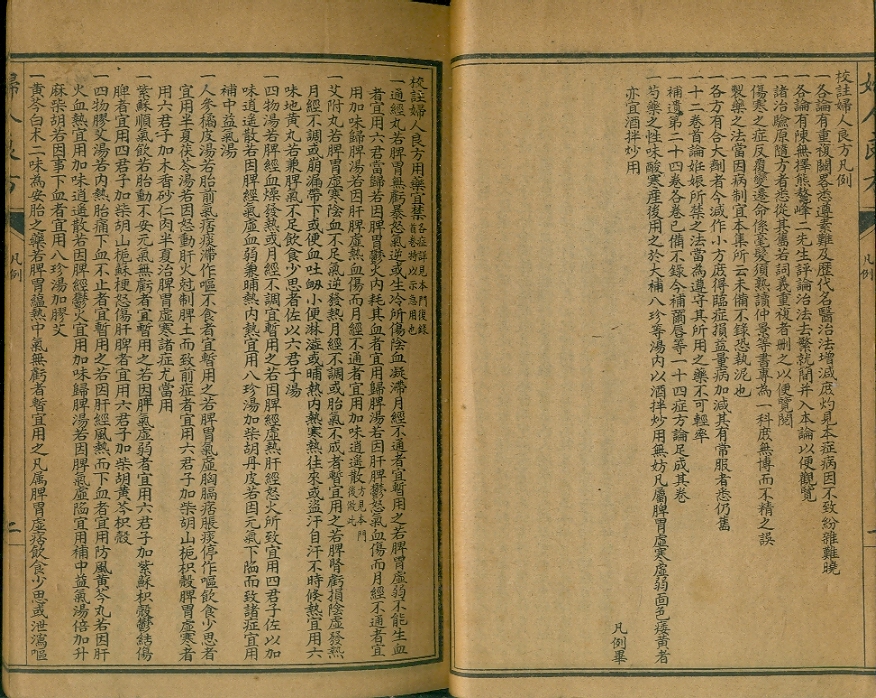 校註婦人良方凡例
一各論有重複闕畧悉遵素難及歷代名醫治法增減庶灼見本症病因不致紛雜難曉
一各論有陳無擇熊鰲峰二先生評論治法去繁就簡并入本論以便觀覽
諸治驗原隨方者悉從其舊若詞義重複者刪之以便覽閱
一傷寒之症反覆變遷命係毫髮須熟讀仲景等書專為一科庶無博而不精之誤
製藥之法當因病制宜本集所云未備不錄恐執泥也
一各方有合大劑者今減作小方庶得臨症損益量病加減其有常服者悉仍舊
一十二卷首論妊娠所禁之法當為遵守其所用之藥不可輕率
一補遺第二十四卷各卷已備不錄今補繭唇等一十四症方論足成其卷
一芍藥之性味酸寒產後用之於大補八珍等湯內以酒拌炒用無妨凡屬脾胃虛寒虛弱面色痿黃者
亦宜酒拌炒用
凡例畢
校註婦人良方用藥宜禁
各症詳見本門復錄
首卷特以示急用也
一通經丸若脾胃無虧暴怒氣逆或生冷所傷陰血凝滯月經不通者宜暫用之若脾胃虛弱不能生血
者宜用六君當歸若因脾胃鬱火內耗其血者宜用歸脾湯若因肝脾鬱怒氣血傷而月經不通者宜
用加味歸脾湯若因肝脾虛熱血傷而月經不通者宜用加味逍遙散
方見本門
後倣此
一艾附丸若脾胃虛寒陰血不足氣逆發熱月經不調或胎氣不成者暫宜用之若脾腎虧損陰虛發熱
月經不調或崩漏帶下或便血吐衂小便淋澁或晡熱內熱寒熱往來或盜汗自汗不時倏熱宜用六
味地黃丸若兼脾氣不足飲食少思者佐以六君子湯
一四物湯若脾經血燥發熱或月經不調宜暫用之若因脾經虛熱肝經怒火所致宜用四君子佐以加
味逍遙散若因脾經氣虛血弱兼晡熱內熱宜用八珍湯加柴胡丹皮若因元氣下陷而致諸症宜用
補中益氣湯
一人參橘皮湯若胎前氣痞痰滯作嘔不食者宜暫用之若脾胃氣虛胸膈痞脹痰停作嘔飲食少思者
宜用半夏茯苓湯若因怒動肝火尅制脾土而致前症者宜用六君子加柴胡山梔枳殼脾胃虛寒者
用六君子加木香砂仁肉半夏治脾胃虛寒諸症尤當用
一紫蘇順氣飲若胎動不安元氣無虧者宜暫用之若因脾氣虛弱者宜用六君子加紫蘇枳殼鬱結傷
脾者宜用四君子加柴胡山梔蘇梗怒傷肝脾者宜用六君子加柴胡黃芩枳殼
一四物膠艾湯若內熱胎痛下血不止者宜暫用之若因肝經風熱而下血者宜用防風黃芩丸若因肝
火血熱宜用加味逍遙散若因脾經鬱火宜用加味歸脾湯若因脾氣虛陷宜用補中益氣湯倍加升
麻柴胡若因事下血者宜用八珍湯加膠艾
一黃芩白朮二味為安胎之藥若脾胃蘊熱中氣無虧者暫宜用之凡屬脾胃虛痞飲食少思或泄瀉嘔
婦人良方
凡例
二
凡例